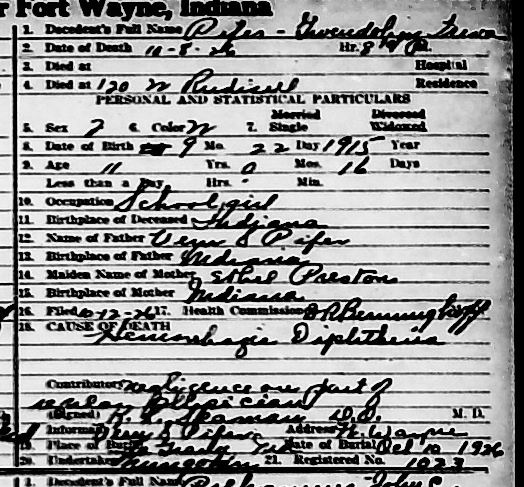 r Fort Wayne, Indiana
1. Decedent's Full Name Pifer - Gwendolyn
2. Date of Death 11-8-26 Hr. 8
3. Died at Hospital
4. Died at 120 W Rudisill Residence
PERSONAL AND STATISTICAL PARTICULARS
Married Divorced
5. Sex F 6. Color W 7. Single Widowed
8. Date of Birth 9 Mo. 22 Day 1915 Year
9. Age 11 Yrs. 0 Mos. 16 Days
Less than a Day Hrs. Min.
10. Occupation School girl
11. Birthplace of Deceased Indiana
12. Name of Father Vern S Pifer
13. Birthplace of Father Indiana
14. Maiden Name of Mother Ethel Preston
15. Birthplace of Mother Indiana
16. Filed 10-12-26 17. Health Commissioner
18. CAUSE OF DEATH
Hemorrhagic Diphtheria
Contributory negligence on part of
regular physician
(Signed) M. D.
Informant Vern S Pifer Address Ft. Wayne
19. Place of Burial Date of Burial Oct 10 1926
20. Undertaker 21. Registered No. 1023
1. Decedent's Full Name